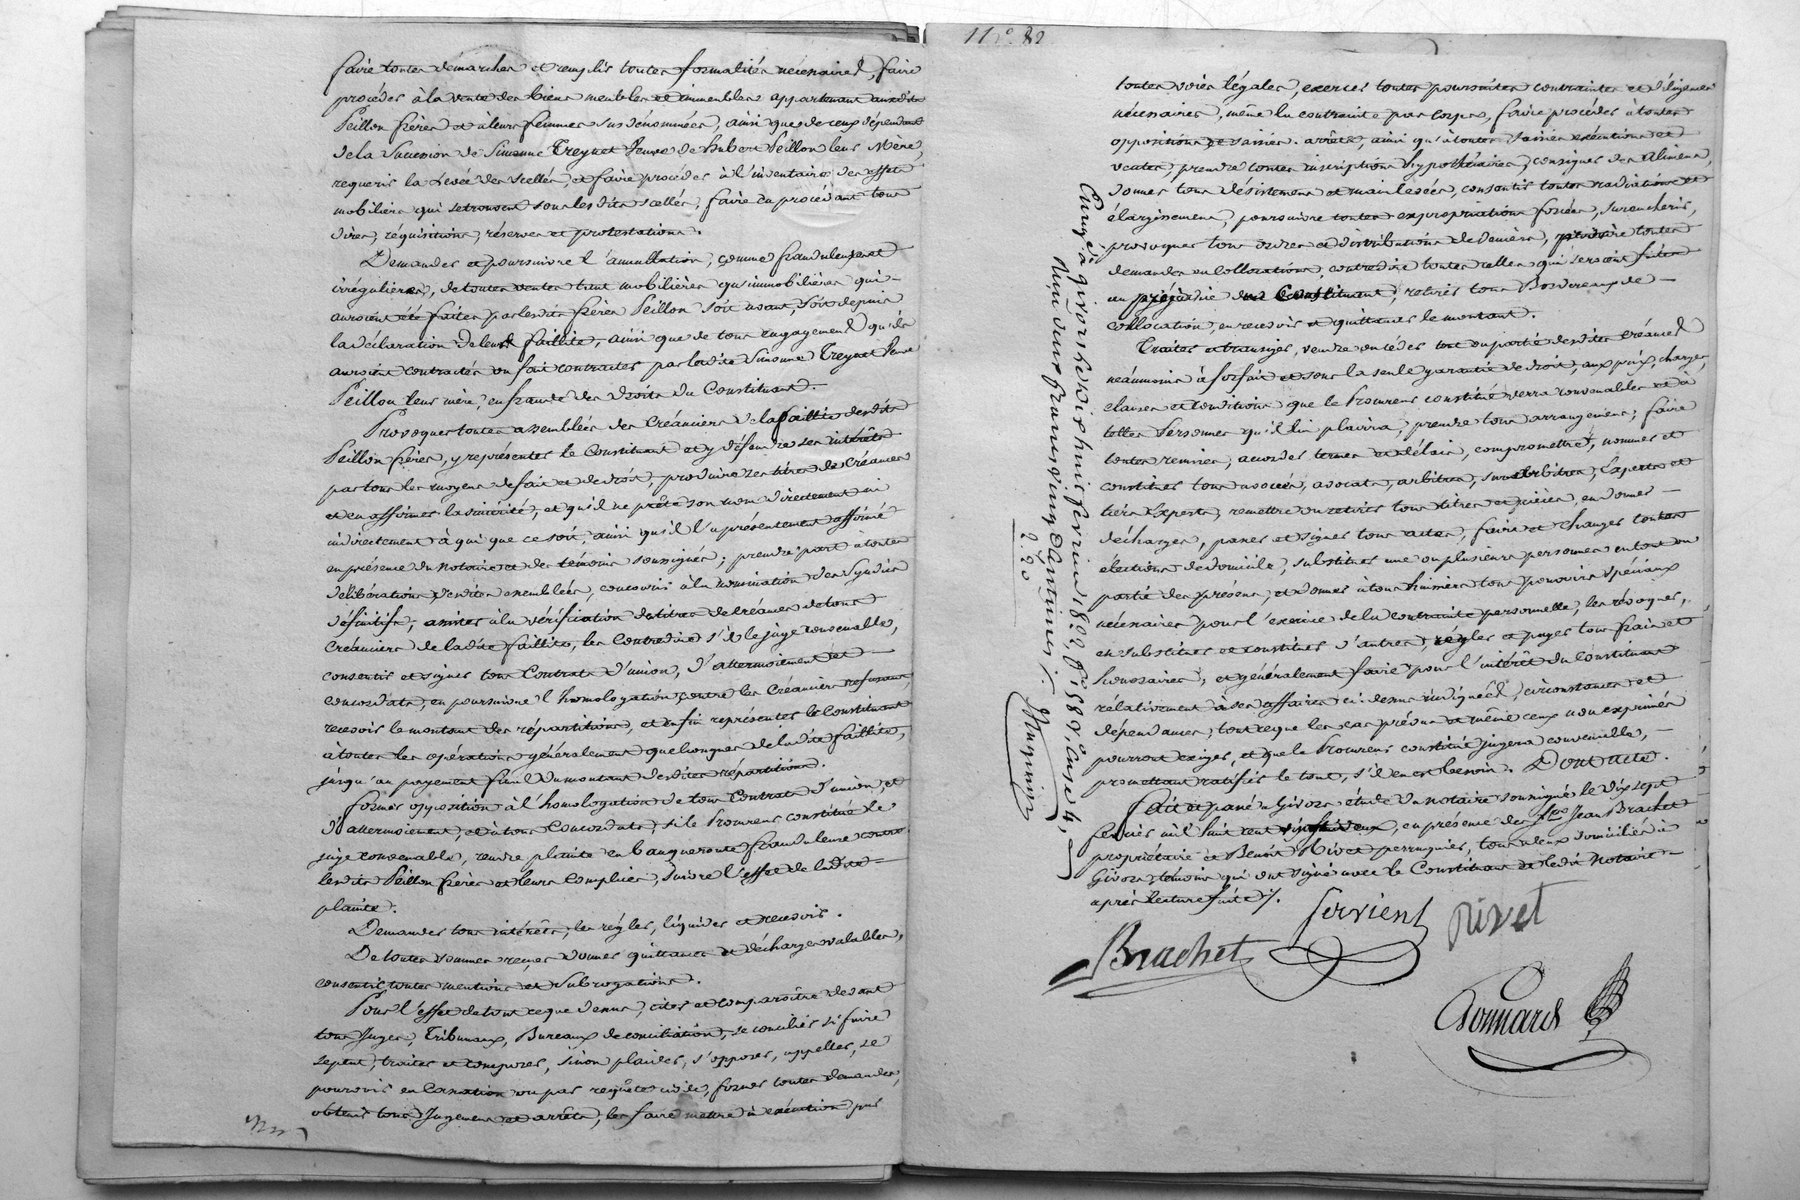 faire toutes démarches et remplir toutes formalités nécessaires, faire
procéder à la vente des biens meubles et immeubles appartenant auxdits
Peillon frères et à leurs femmes susdénommées, ainsi que de ceux dépendant
de la Succession de Simonne Treynet Veuve de hubert Peillon leur Mère,
requerir la Levée des scellés, et faire procéder à l'inventaire des effets
mobiliers qui se trouvent sous lesdits scellés, faire en procédant tous
dires, réquisitions, réserves et protestations.
Demander et poursuivre l'annullation, comme frauduleuses et
irrégulières, de toutes ventes tant mobilières qu'immobilières qui
auroient été faites par lesdits frères Peillon soit avant, soit depuis
la déclaration de leur faillite, ainsi que de tous engagemens qu'ils
auroient contractés ou fait contracter par ladite Simonne Treynet Veuve
Peillon leur mère, en fraude des droits du Constituant.
Provoquer toutes assemblées des Créanciers de la faillite desdits
Peillon frères, y représenter le Constituant et y défendre ses intérêts
par tous les moyens de fait et de droit, produire ses titres de Créances
et en affirmer la sincérité, et qu'il ne prête son nom directement ni
indirectement à qui que ce soit, ainsi qu'il l'a présentement affirmé
en présence du notaire et des témoins soussignés; prendre part à toutes
délibérations desdites assemblées, concourir à la nomination des Syndics
définitifs, assister à la vérification des titres de Créances de tous
Créanciers de ladite faillite, les Contredire s'il le juge convenable,
consentir et signer tous Contrats d'union, d'attermoiement et
concordats, en poursuivre l'homologation contre les Créanciers refusans,
recevoir le montant des répartitions, et enfin représenter le Constituant
à toutes les opérations généralement quelconques de ladite faillite,
jusqu'au payement final du montant desdites répartitions.
Former opposition à l'homologation de tous Contrats d'union, et
d'attermoiement, et à tous Concordats, si le Procureur constitué le
juge convenable, rendre plainte en banqueroute frauduleuse contre
lesdits Peillon frères et leurs Complices, suivre l'effet de ladite
plainte.
Demander tous intérêts, les régler, liquider et recevoir.
De toutes sommes reçues donner quittances et décharges valables,
consentir toutes mentions et subrogations.
Pour l'effet de tout ce que dessus, citer et comparoître devant
tous Juges, Tribunaux, Bureaux de conciliation, se concilier si faire
se peut, traiter et composer, sinon plaider, s'opposer, appeller, se
pourvoir en Cassation ou par requête civile, former toutes demandes,
obtenir tous Jugemens et arrêts, les faire mettre à exécution par
toutes voies légales, exercer toutes poursuites contraintes et diligences
nécessaires, même la contrainte par corps, faire procéder à toutes
oppositions et saisies-arrêts, ainsi qu'à toutes saisies exécutions et
ventes, prendre toutes inscriptions hypothécaires, consigner des alimens,
donner tous désistemens et main levées, consentir toutes radiations et
élargissemens, poursuivre toutes expropriations forcées, surenchérir,
provoquer tous ordres et distributions de deniers, produire toutes
demandes en Collocations, contredire toutes celles qui seroient faites
au préjudice du Constituant, retirer tous Bordereaux de
collocation, en recevoir et quittancer le montant.
Traiter et transiger, vendre ou céder tout ou partie desdites créances
néanmoins à forfait et sous la seule garantie de droit, aux prix, charges,
clauses et conditions que le Procureur constitué verra convenables et à
telles Personnes qu'il lui plaira, prendre tous arrangemens; faire
toutes remises, accorder termes et délais, compromettre, nommer et
constituer tous avoués, avocats, arbitres, surarbitres, Experts et
tiers Experts, remettre ou retirer tous titres et pièces, en donner
décharges, passer et signer tous actes, faire et changer toutes
élections de domicile, substituer une ou plusieurs personnes en tout ou
partie des présens, et donner à tous huissiers tous pouvoirs spéciaux
nécessaires pour l'exercice de la contrainte personnelle, les révoquer,
en substituer et constituer d'autres, régler et payer tous frais et
honoraires, et généralement faire pour l'intérêt du Constituant
rélativement à ses affaires ci-dessus indiquées, circonstances et
dépendances, tout ce que les cas prévus et même ceux non exprimés
pourront exiger, et que le Procureur constitué jugera convenable,
promettant ratifier le tout, s'il en est besoin. Dont acte.
Fait et passé à Givors étude du notaire soussigné le dix sept
février mil huit cent vingt deux, en présence des Srs Jean Brachet
propriétaire et Benoît Rivet perruquier, tous deux domiciliés à
Givors témoins qui ont signé avec le Constituant et ledit Notaire
après lecture faite ./.
Servient
Rivet
Brachet
Enregé à givors le dix huit février 1822, fo. 188 Vo. Case 4,
deux francs vingt centimes ./.
2.20